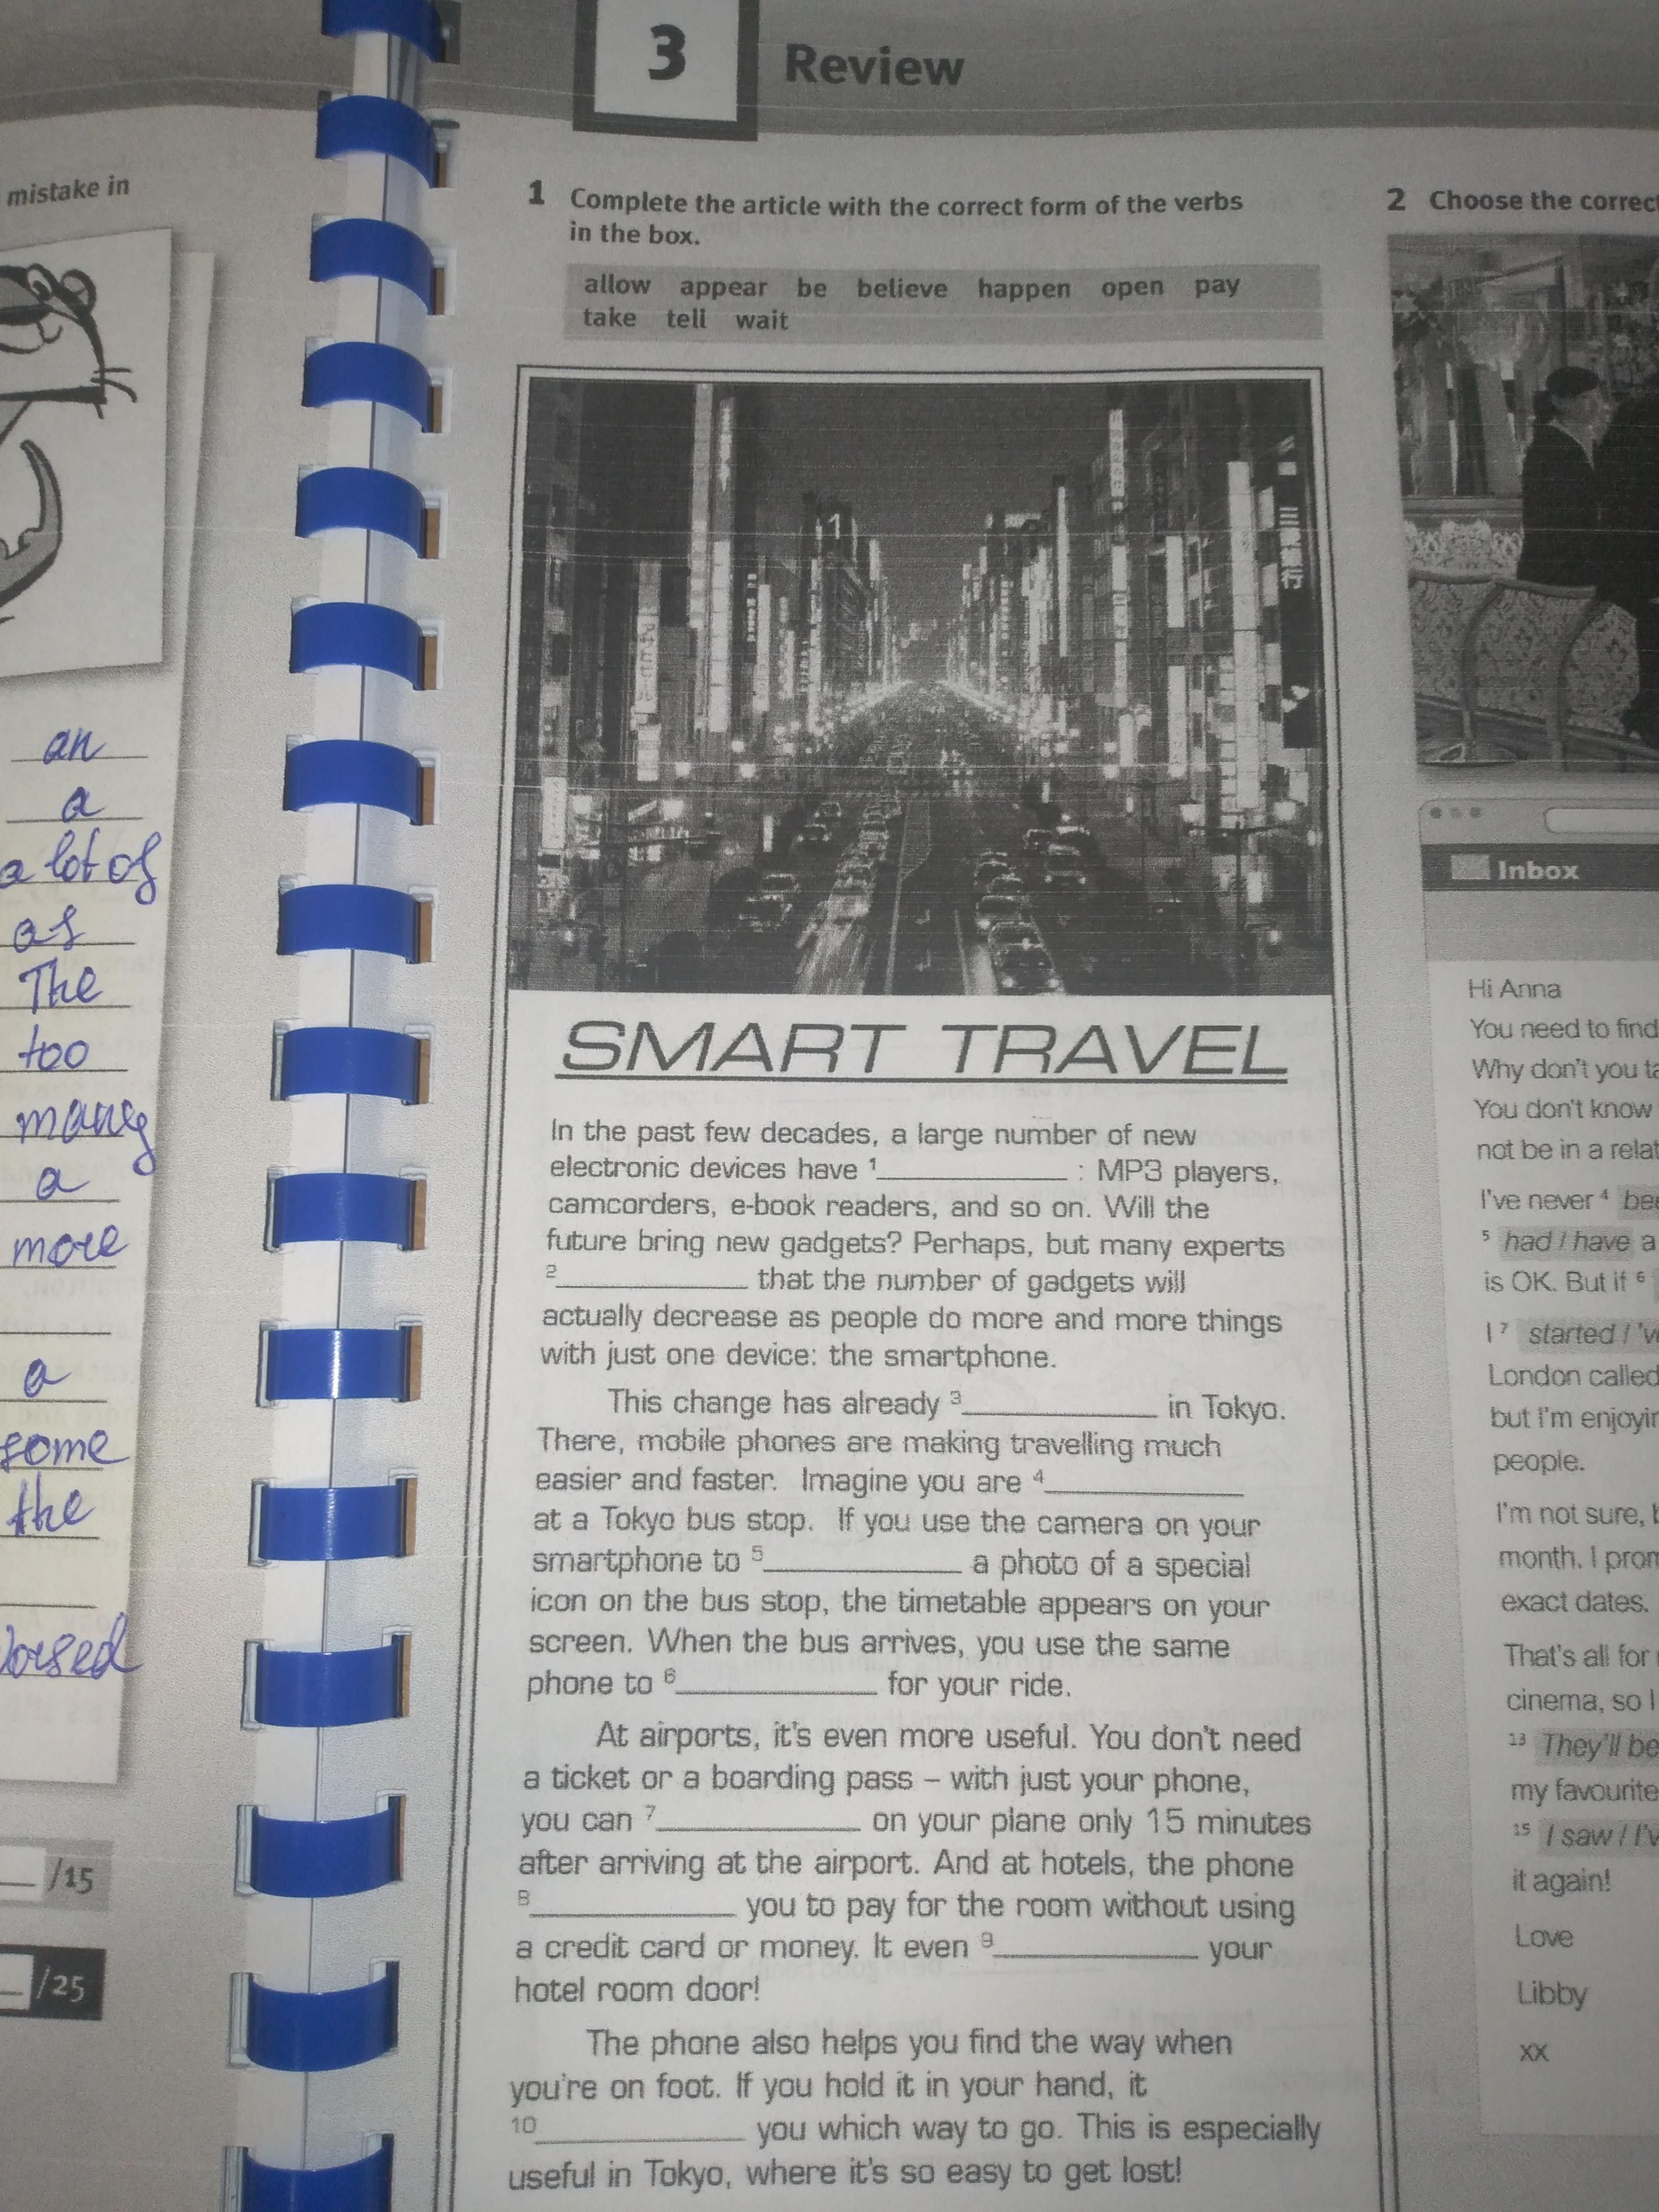 mistake in
an
a
a lot of
as
The
too
many
a
more
a
some
the
/15
/25
3 Review
1 Complete the article with the correct form of the verbs
in the box.
allow appear be believe happen open pay
take tell wait
SMART TRAVEL
In the past few decades, a large number of new
electronic devices have 1__________ : MP3 players,
camcorders, e-book readers, and so on. Will the
future bring new gadgets? Perhaps, but many experts
2__________ that the number of gadgets will
actually decrease as people do more and more things
with just one device: the smartphone.
This change has already 3__________ in Tokyo.
There, mobile phones are making travelling much
easier and faster. Imagine you are 4__________
at a Tokyo bus stop. If you use the camera on your
smartphone to 5__________ a photo of a special
icon on the bus stop, the timetable appears on your
screen. When the bus arrives, you use the same
phone to 6__________ for your ride.
At airports, it's even more useful. You don't need
a ticket or a boarding pass – with just your phone,
you can 7__________ on your plane only 15 minutes
after arriving at the airport. And at hotels, the phone
8__________ you to pay for the room without using
a credit card or money. It even 9__________ your
hotel room door!
The phone also helps you find the way when
you're on foot. If you hold it in your hand, it
10__________ you which way to go. This is especially
useful in Tokyo, where it's so easy to get lost!
2 Choose the correct
Inbox
Hi Anna
You need to find
Why don't you
You don't know
not be in a
I've never 4
5 had / have a
is OK. But if 6
I 7 started /
London called
but I'm
people.
I'm not sure,
month. I
exact dates.
That's all for
cinema, so I
13 They'll be
my favourite
15 I saw / I'v
it again!
Love
Libby
xx